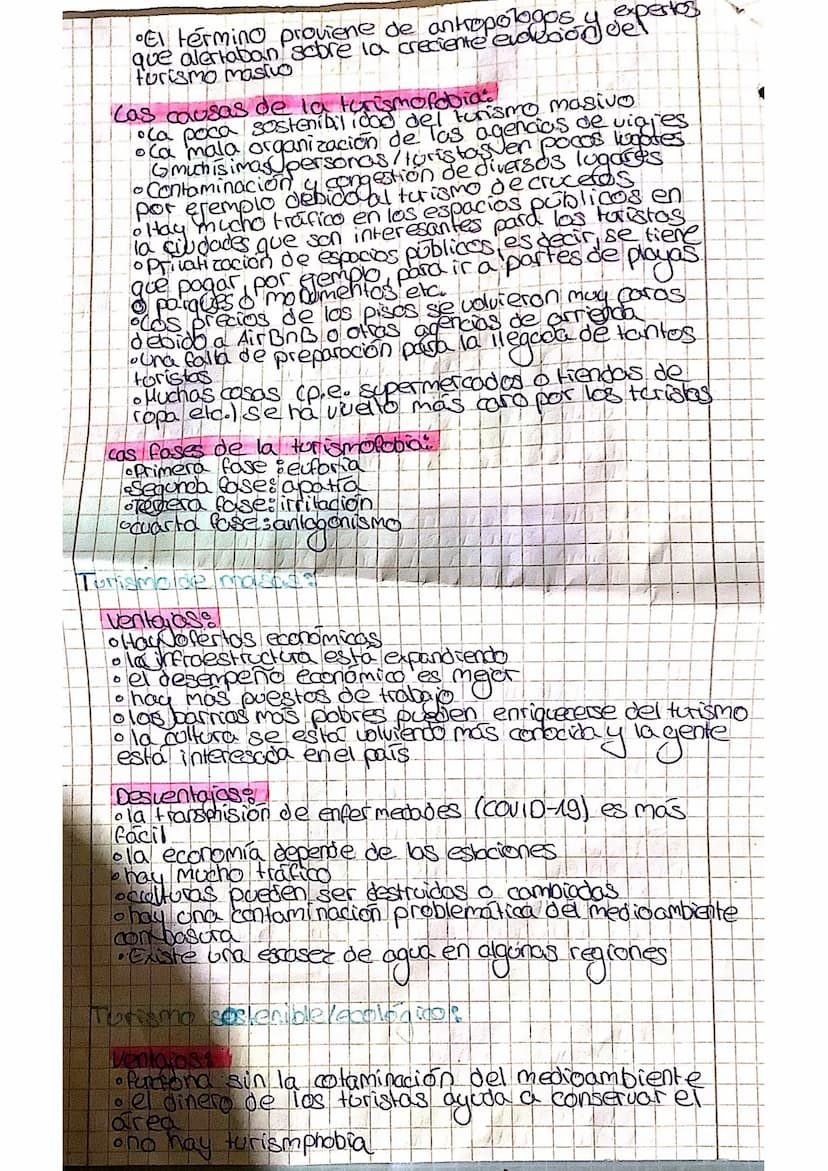 •El término proviene de antropólogos y expertos
que alertaban sobre la creciente evolución del
turismo masivo
Las causas de la turismofobia:
•La poca sostenibilidad del turismo masivo
•La mala organización de las agencias de viajes
↳muchísimas personas/turistas en pocos lugares
•Contaminación y congestión de diversos lugares
por ejemplo debido al turismo de cruceros
•Hay mucho tráfico en los espacios públicos en
la ciudades que son interesantes para los turistas
•Privatización de espacios públicos, es decir, se tiene
que pagar, por ejemplo, para ir a partes de playas
o parques o monumentos etc.
•Los precios de los pisos se volvieron muy caros
debido a AirBnB o otras agencias de arrienda
•Una falta de preparación para la llegada de tantos
turistas
•Muchas cosas (p.e. supermercados o tiendas de
ropa etc.) se ha vuelto más caro por los turistas
Las fases de la turismofobia:
•Primera fase: euforia
•Segunda fase: apatía
•Tercera fase: irritación
•cuarta fase: antagonismo
Turismo de masas:
Ventajas:
•Hay ofertas económicas
•la infraestructura está expandiendo
•el desempeño económico es mejor
•hay más puestos de trabajo
•los barrios más pobres pueden enriquecerse del turismo
•la cultura se está volviendo más conocida y la gente
está interesada en el país
Desventajas:
•la transmisión de enfermedades (COVID-19) es más
fácil
•la economía depende de las estaciones
•hay mucho tráfico
•culturas pueden ser destruidas o cambiadas
•hay una contaminación problemática del medioambiente
con basura
•Existe una escasez de agua en algunas regiones
Turismo sostenible/ecológico:
Ventajas:
•funciona sin la cotaminación del medioambiente
•el dinero de los turistas ayuda a conservar el
área
•no hay turismphobia